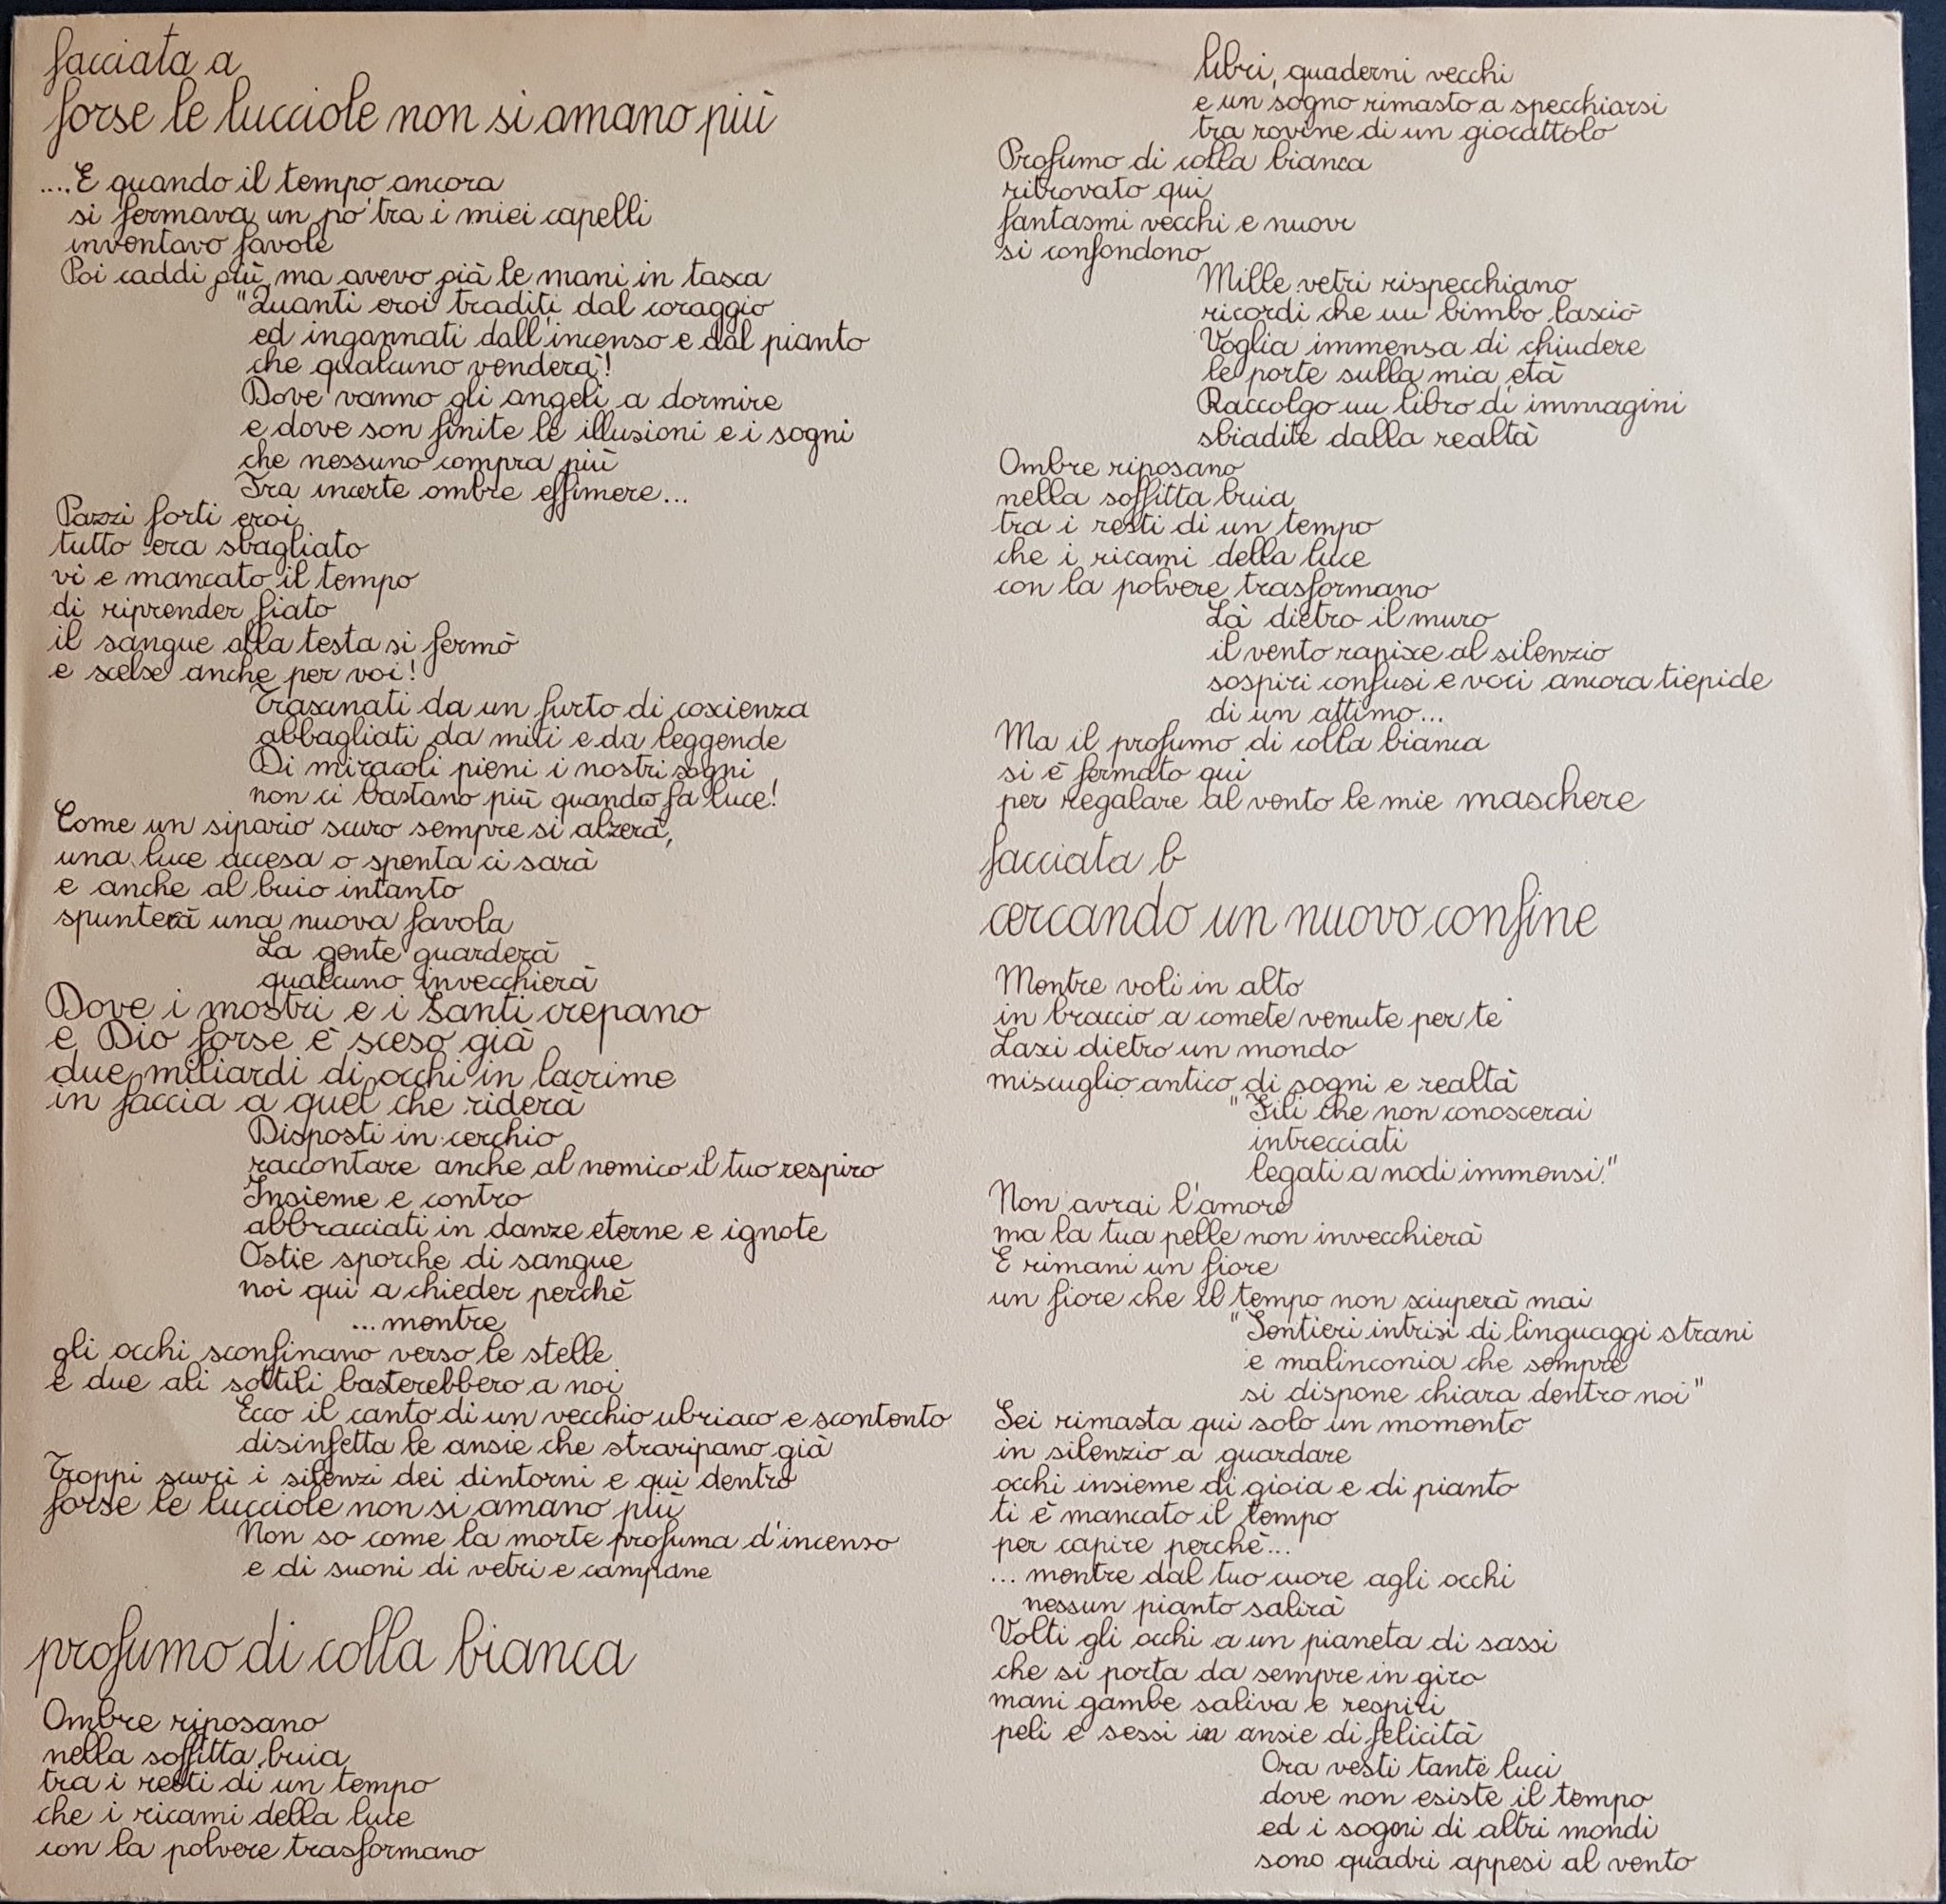 facciata a
forse le lucciole non si amano più
....E quando il tempo ancora
si fermava un po' tra i miei capelli
inventavo favole
Poi caddi giù, ma avevo già le mani in tasca
"Quanti eroi traditi dal coraggio
ed ingannati dall'incenso e dal pianto
che qualcuno venderà!
Dove vanno gli angeli a dormire
e dove son finite le illusioni e i sogni
che nessuno compra più
Tra incerte ombre effimere...
Pazzi forti eroi
tutto era sbagliato
vi e mancato il tempo
di riprender fiato
il sangue alla testa si fermò
e scelse anche per voi!
Trascinati da un furto di coscienza
abbagliati da miti e da leggende
Di miracoli pieni i nostri sogni
non ci bastano più quando fa luce!
Come un sipario scuro sempre si alzerà,
una luce accesa o spenta ci sarà
e anche al buio intanto
spunterà una nuova favola
La gente guarderà
qualcuno invecchierà
Dove i mostri e i Santi crepano
e Dio forse è sceso già
due miliardi di occhi in lacrime
in faccia a quel che riderà
Disposti in cerchio
raccontare anche al nemico il tuo respiro
Insieme e contro
abbracciati in danze eterne e ignote
Ostie sporche di sangue
noi qui a chieder perchè
...mentre
gli occhi sconfinano verso le stelle
e due ali sottili basterebbero a noi
Ecco il canto di un vecchio ubriaco e scontento
disinfetta le ansie che straripano già
Troppi scuri i silenzi dei dintorni e qui dentro
forse le lucciole non si amano più
Non so come la morte profuma d'incenso
e di suoni di vetri e campane
profumo di colla bianca
Ombre riposano
nella soffitta buia
tra i resti di un tempo
che i ricami della luce
con la polvere trasformano
libri, quaderni vecchi
e un sogno rimasto a specchiarsi
tra rovine di un giocattolo
Profumo di colla bianca
ritrovato qui
fantasmi vecchi e nuovi
si confondono
Mille vetri rispecchiano
ricordi che un bimbo lasciò
Voglia immensa di chiudere
le porte sulla mia età
Raccolgo un libro di immagini
sbiadite dalla realtà
Ombre riposano
nella soffitta buia
tra i resti di un tempo
che i ricami della luce
con la polvere trasformano
Là dietro il muro
il vento rapisce al silenzio
sospiri confusi e voci ancora tiepide
di un attimo...
Ma il profumo di colla bianca
si è fermato qui
per regalare al vento le mie maschere
facciata b
cercando un nuovo confine
Mentre voli in alto
in braccio a comete venute per te
Lasci dietro un mondo
miscuglio antico di sogni e realtà
"Fili che non conoscerai
intrecciati
legati a nodi immensi."
Non avrai l'amore
ma la tua pelle non invecchierà
E rimani un fiore
un fiore che il tempo non sciuperà mai
"Sentieri intrisi di linguaggi strani
e malinconia che sempre
si dispone chiara dentro noi"
Sei rimasta qui solo un momento
in silenzio a guardare
occhi insieme di gioia e di pianto
ti è mancato il tempo
per capire perchè...
... mentre dal tuo cuore agli occhi
nessun pianto salirà
Volti gli occhi a un pianeta di sassi
che si porta da sempre in giro
mani gambe saliva e respiri
peli e sessi in ansie di felicità
Ora vesti tante luci
dove non esiste il tempo
ed i sogni di altri mondi
sono quadri appesi al vento